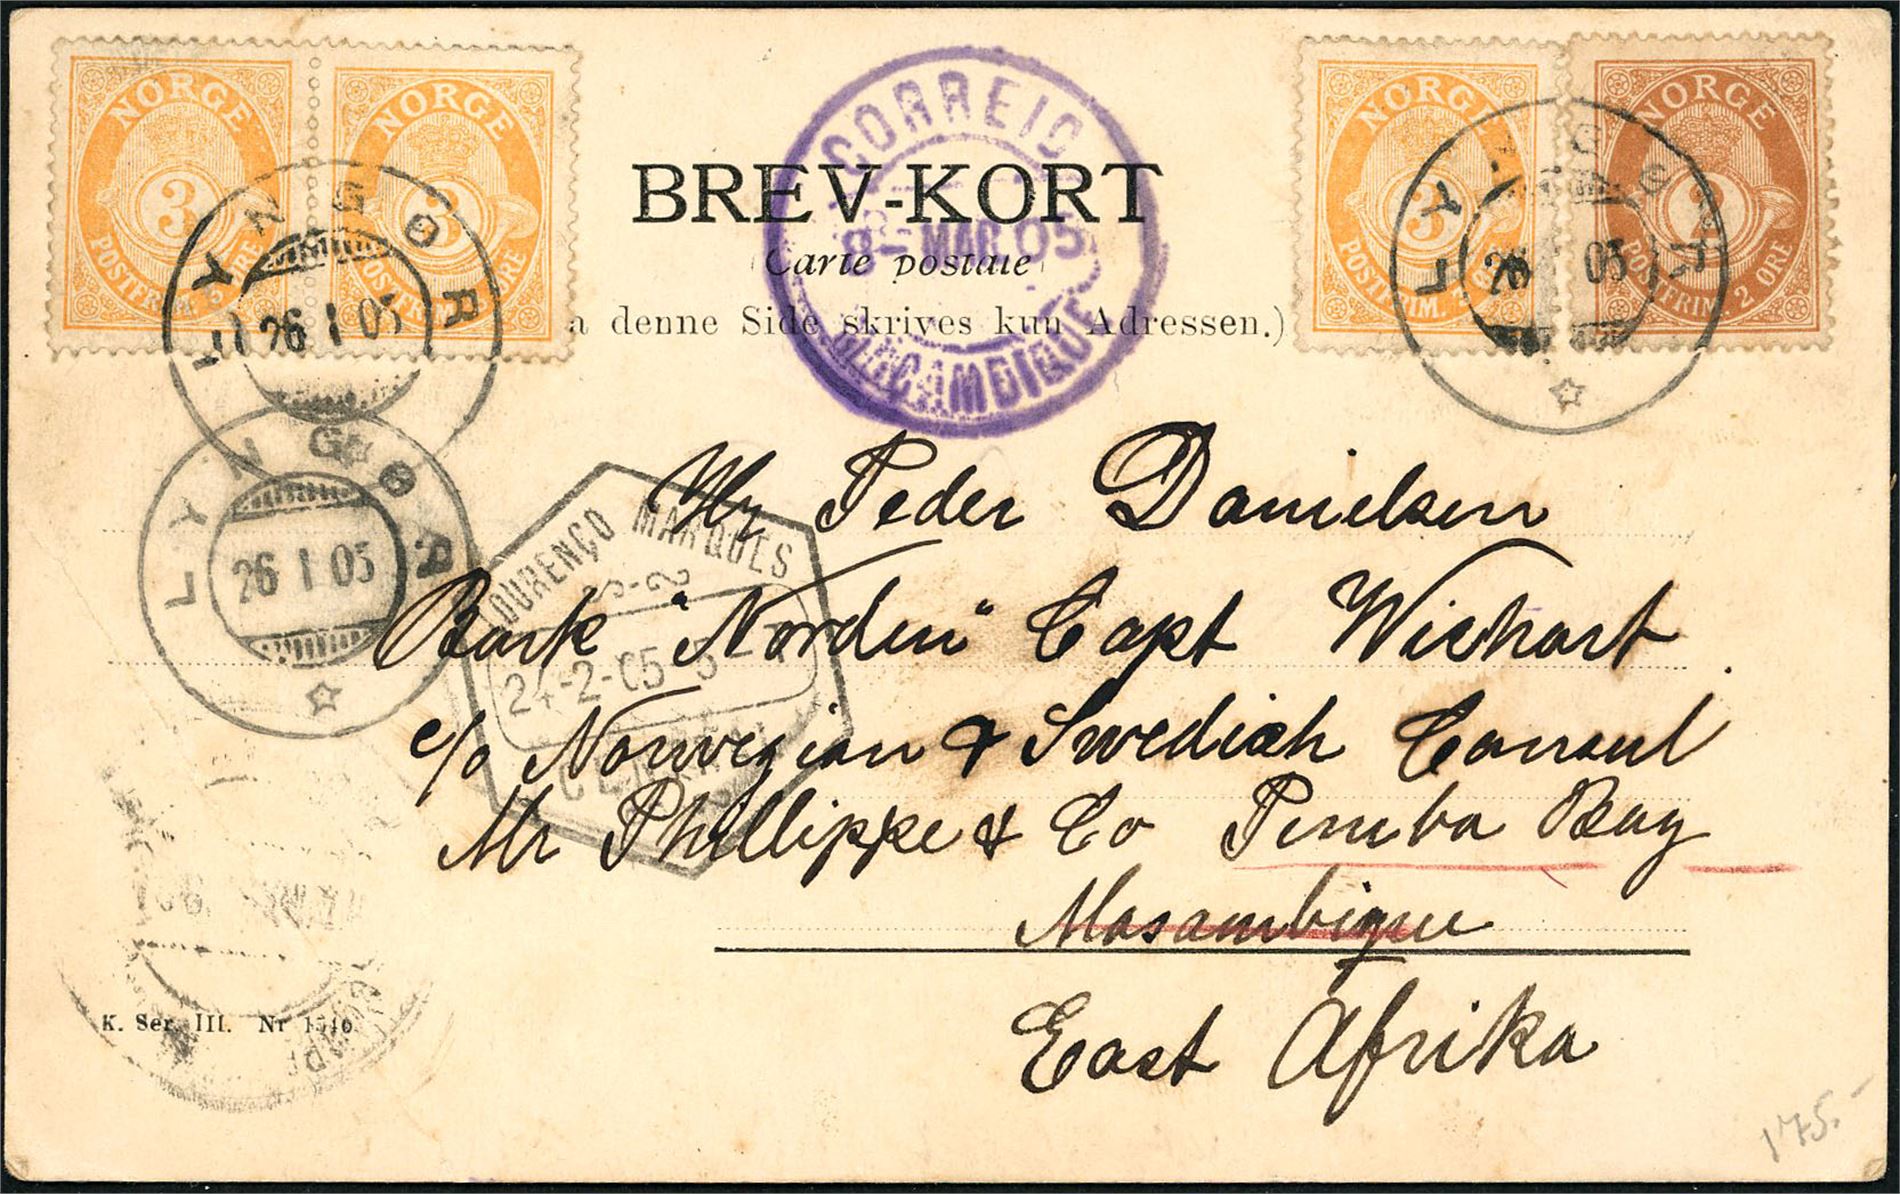 NORGE 3 POSTFRIM. 3 ØRE
NORGE 3 POSTFRIM. 3 ØRE
NORGE 3 POSTFRIM. 3 ØRE
NORGE 2 POSTFRIM. 2 ØRE
LYNGØR 26 I 05
LYNGØR 26 I 05
CORREIO
8 MAR. 05
MOÇAMBIQUE
BREV-KORT
Carte postale
a denne Side skrives kun Adressen.)
LYNGØR
26 I 05
LOURENÇO MARQUES
24-2-05
CENTRAL
Hr Peder Danielsen
Bark "Norden" Capt Wichart
c/o Norwegian & Swedish Consul
Mr Phillippe & Co Pemba Bay
Mosambique
East Afrika
K. Ser. III. Nr 1546
175.-